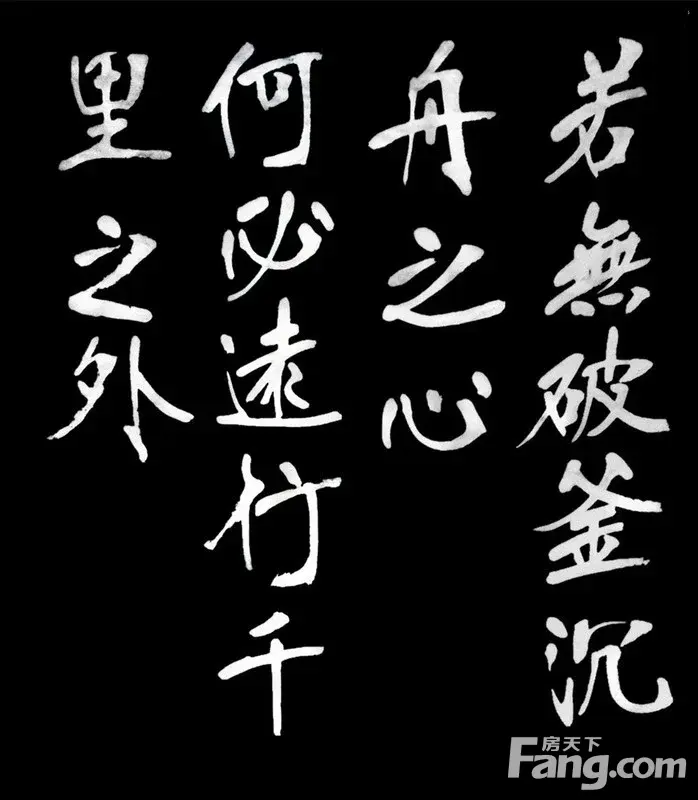 若無破釜沉
舟之心
何必遠行千
里之外
房天下
Fang.com